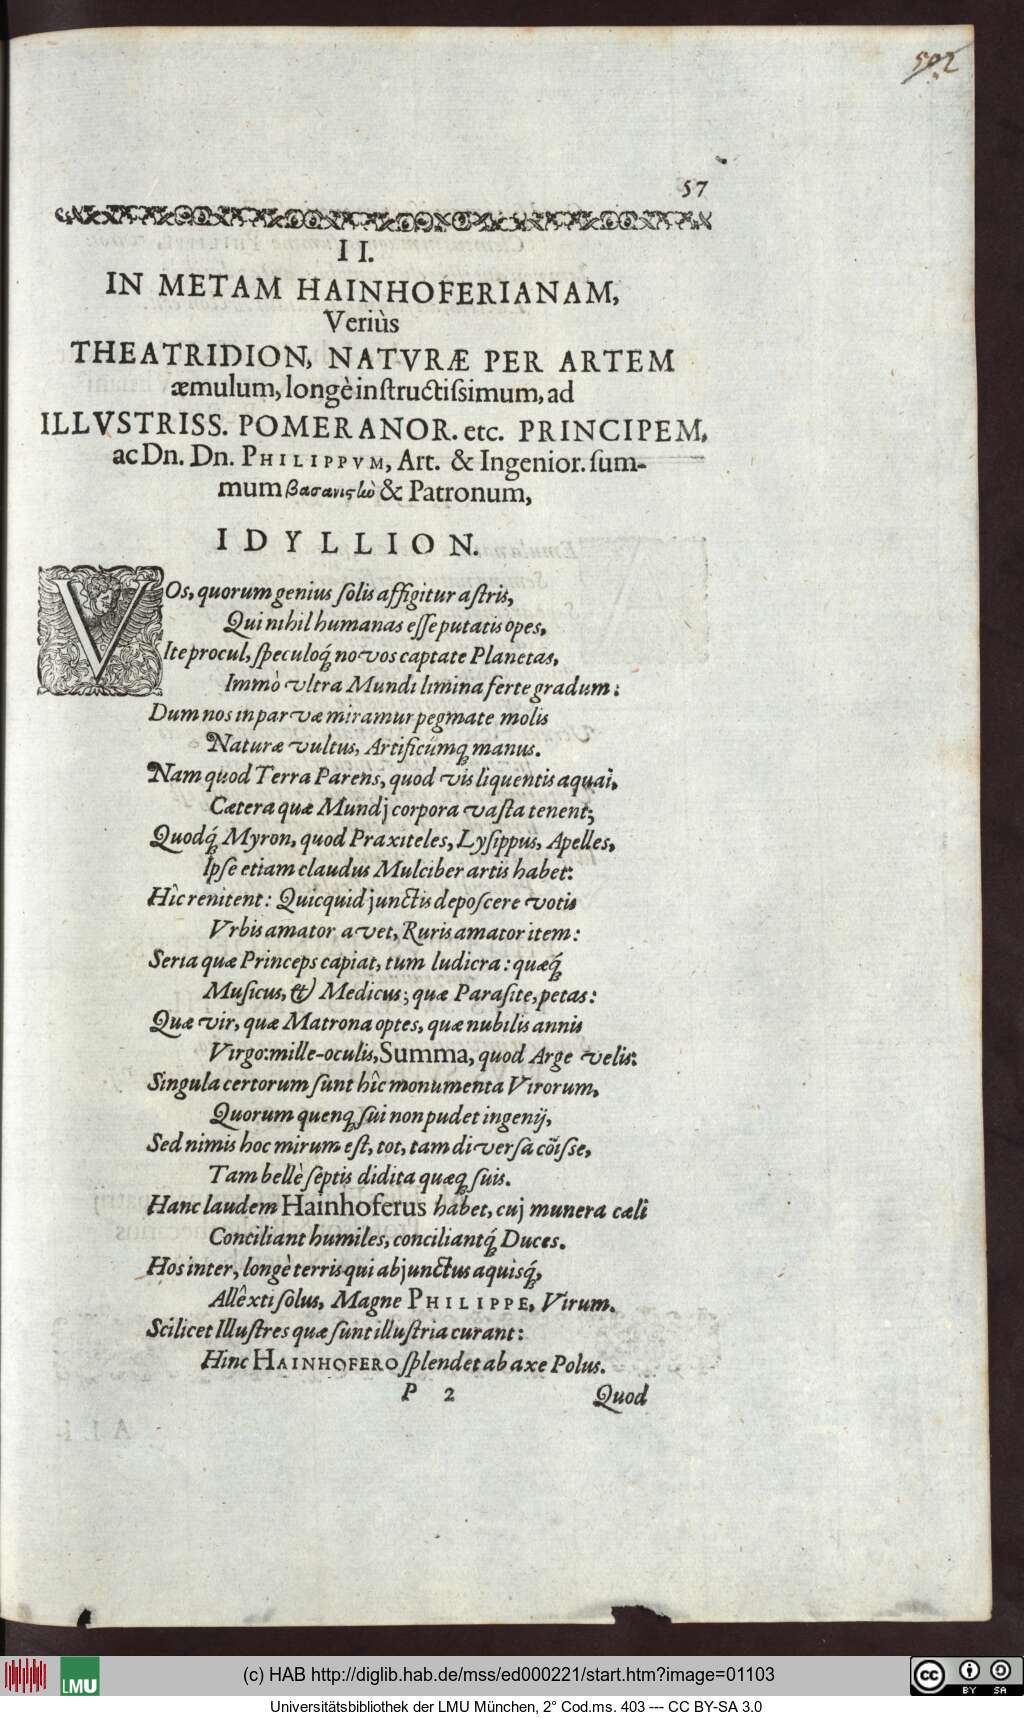 502
57
II.
IN METAM HAINHOFERIANAM,
Veriùs
THEATRIDION, NATVRÆ PER ARTEM
æmulum, longè inſtructiſsimum, ad
ILLVSTRISS. POMERANOR. etc. PRINCIPEM,
ac Dn. Dn. PHILIPPVM, Art. & Ingenior. ſum-
mum & Patronum,
IDYLLION.
VOs, quorum genius ſolis affigitur aſtris,
Qui nihil humanas eſſe putatis opes,
Ite procul, ſpeculoq́; novos captate Planetas,
Immò vltra Mundi limina ferte gradum:
Dum nos in parvæ miramur pegmate molis
Naturæ vultus, Artificúmq; manus.
Nam quod Terra Parens, quod vis liquentis aquaì,
Cætera quæ Mundj corpora vaſta tenent;
Quodq́; Myron, quod Praxiteles, Lyſippus, Apelles,
Ipſe etiam claudus Mulciber artis habet:
Hîc renitent: Quicquid junctis depoſcere votis
Vrbis amator avet, Ruris amator item:
Seria quæ Princeps capiat, tum ludicra: quæq́;
Muſicus, & Medicus; quæ Paraſite, petas:
Quæ vir, quæ Matrona optes, quæ nubilis annis
Virgo: mille-oculis, Summa, quod Arge velis:
Singula certorum ſunt hîc monumenta Virorum,
Quorum quenq; ſui non pudet ingenij,
Sed nimis hoc mirum eſt, tot, tam diverſa cöiſse,
Tam bellè ſeptis didita quæq; ſuis.
Hanc laudem Hainhoferus habet, cuj munera cæli
Conciliant humiles, conciliantq́; Duces.
Hos inter, longè terris qui abjunctus aquisq́;,
Allêxti ſolus, Magne PHILIPPE, Virum.
Scilicet Illuſtres quæ ſunt illuſtria curant:
Hinc HAINHOFERO ſplendet ab axe Polus.
P 2 Quod
LMU
(c) HAB http://diglib.hab.de/mss/ed000221/start.htm?image=01103
cc BY SA
Universitätsbibliothek der LMU München, 2° Cod.ms. 403 --- CC BY-SA 3.0